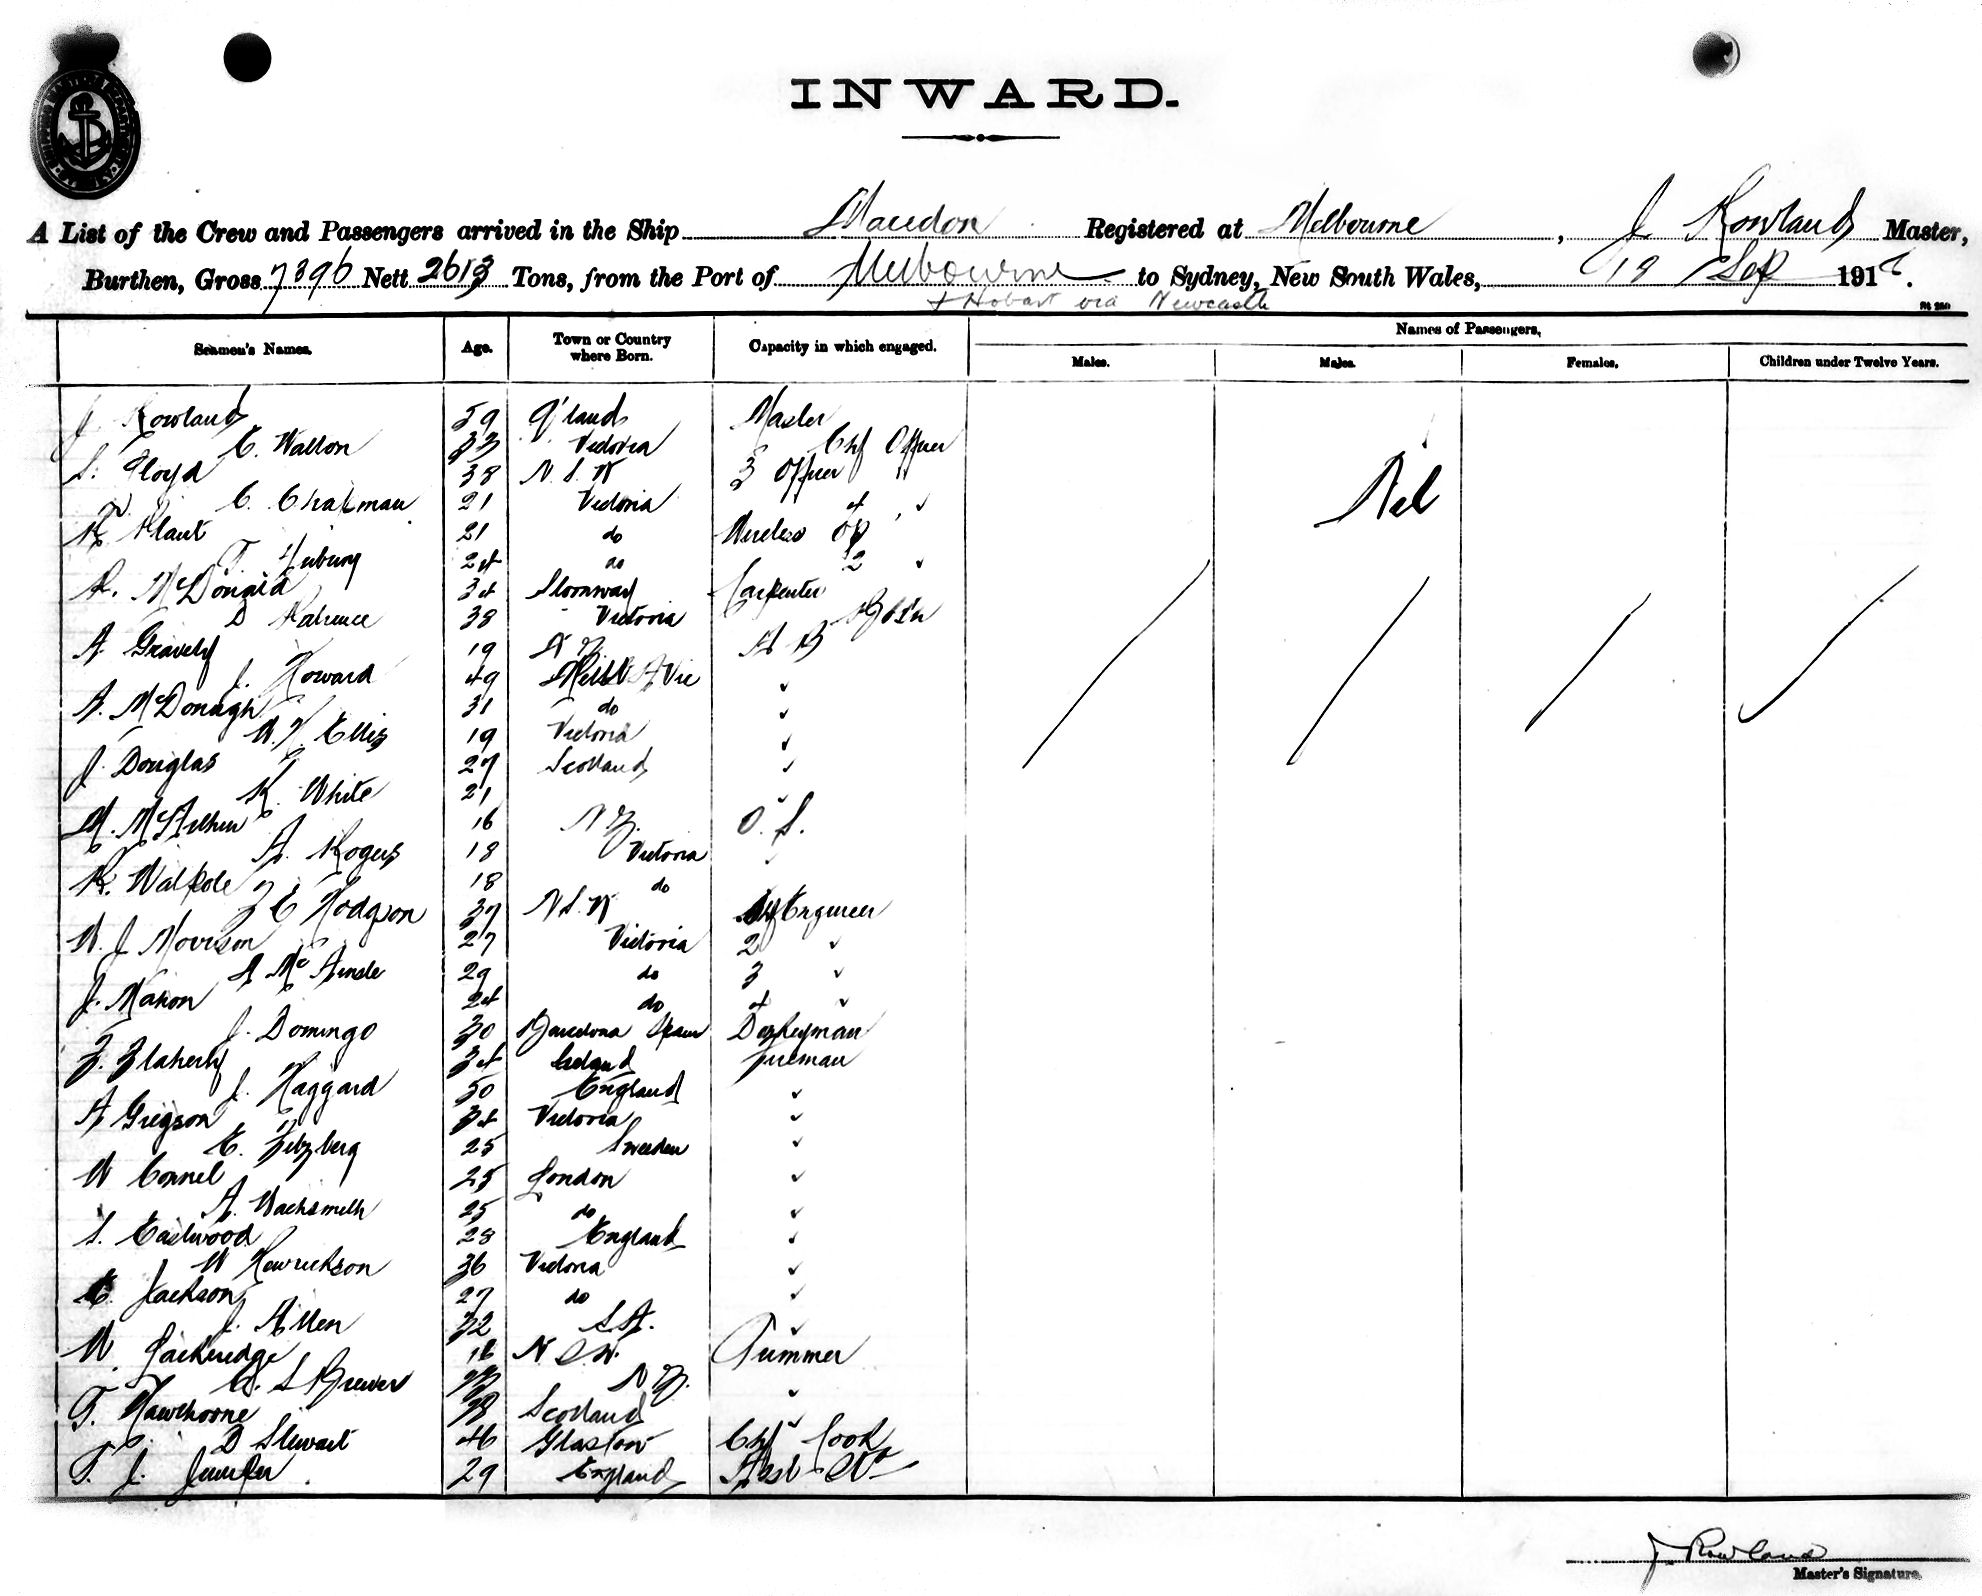 INWARD.
A List of the Crew and Passengers arrived in the Ship Macedon Registered at Melbourne, J. Rowlands Master,
Burthen, Gross 7396 Nett 2613 Tons, from the Port of Melbourne to Sydney, New South Wales, 19 Sep 191
+ Hobart via Newcastle
Names of Passengers.
Seamen's Names. Age. Town or Country where Born. Capacity in which engaged. Males. Males. Females. Children under Twelve Years.
J Rowlands 59 Q'land Master
C. Walton 33 Victoria Chf Officer
S. Floyd 38 N.S.W 3 Officer
C. Chapman 21 Victoria 4 "
Nil
R Plant 21 do Wireless Op
T. 24 do 2 "
R. McDonald 34 Stornway Carpenter
D Patience 38 Victoria
A Gravely 19 N Z. A B
J. Howard 49 Vic "
A. McDonagh 31 do "
W. J. Ellis 19 Victoria "
J. Douglas 27 Scotland "
K. White 21 "
M. McArthur 16 N Z. O. S.
A. Rogers 18 Victoria "
R. Walpole 18 do
F C Hodgson 37 N S. W Chf Engineer
W. J Morrison 27 Victoria 2 "
A Mc Ainsle 29 do 3 "
J. Mahon 24 do 4 "
J. Domingo 30 Barcelona Spain Donkeyman
F. Flaherty 34 Ireland Fireman
J. Haggard 50 England "
A Gregson 34 Victoria "
E. Zetzberg 25 Sweeden "
W Connel 25 London "
A. Wachsmuth 25 do "
S. Eastwood 28 England "
W Henrickson 36 Victoria "
C. Jackson 27 do "
J. Allen 32 S.A. "
W. Lockridge N S.W. Trimmer
C. S Brewer N Z. "
T. Hawthorne Scotland "
D Stewart 46 Glasgow Chf Cook
T. J. Juniper 29 England Asst "
J Rowland
Master's Signature.